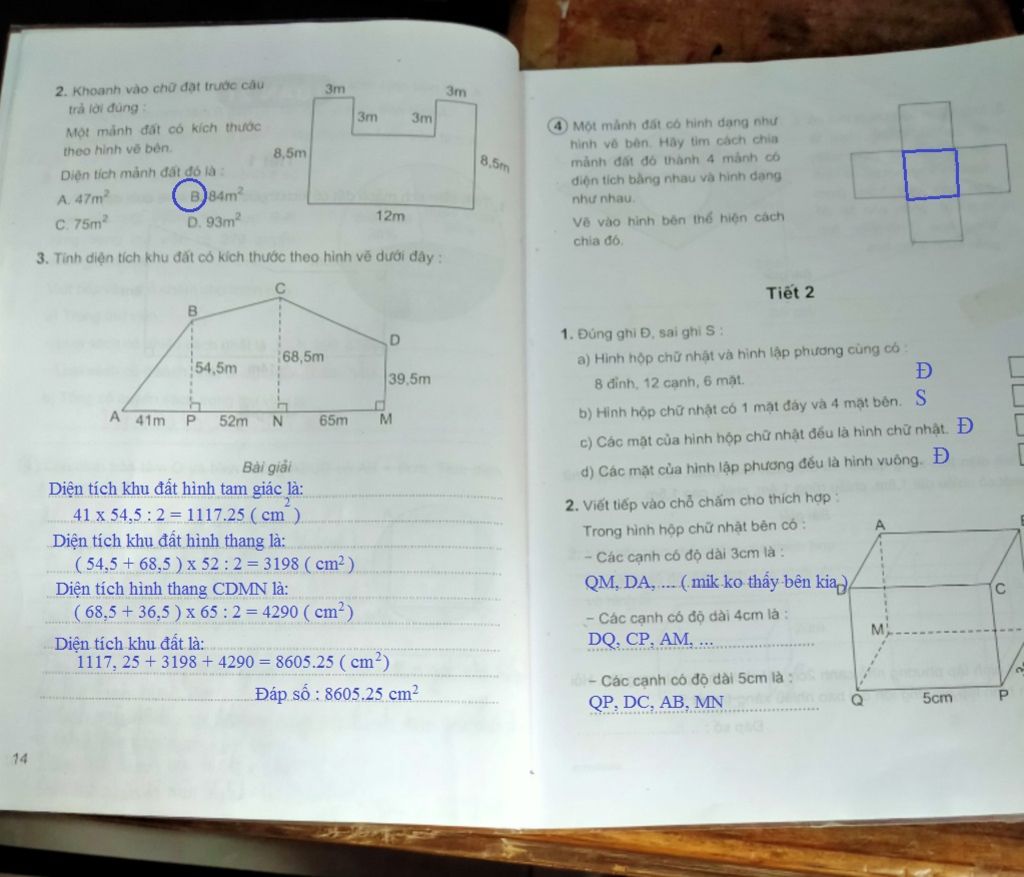 2. Khoanh vào chữ đặt trước câu
trả lời đúng :
Một mảnh đất có kích thước
theo hình vẽ bên.
Diện tích mảnh đất đó là :
A. 47m²
B. 84m²
C. 75m²
D. 93m²
3m
3m
3m
3m
8,5m
8,5m
12m
3. Tính diện tích khu đất có kích thước theo hình vẽ dưới đây :
C
B
D
54,5m
68,5m
39,5m
A
41m
P
52m
N
65m
M
Bài giải
Diện tích khu đất hình tam giác là:
41 x 54,5 : 2 = 1117.25 ( cm² )
Diện tích khu đất hình thang là:
( 54,5 + 68,5 ) x 52 : 2 = 3198 ( cm² )
Diện tích hình thang CDMN là:
( 68,5 + 36,5 ) x 65 : 2 = 4290 ( cm² )
Diện tích khu đất là:
1117, 25 + 3198 + 4290 = 8605.25 ( cm² )
Đáp số : 8605.25 cm²
14
4 Một mảnh đất có hình dạng như
hình vẽ bên. Hãy tìm cách chia
mảnh đất đó thành 4 mảnh có
diện tích bằng nhau và hình dạng
như nhau.
Vẽ vào hình bên thể hiện cách
chia đó.
Tiết 2
1. Đúng ghi Đ, sai ghi S :
a) Hình hộp chữ nhật và hình lập phương cùng có :
8 đỉnh, 12 cạnh, 6 mặt. Đ
b) Hình hộp chữ nhật có 1 mặt đáy và 4 mặt bên. S
c) Các mặt của hình hộp chữ nhật đều là hình chữ nhật. Đ
d) Các mặt của hình lập phương đều là hình vuông. Đ
2. Viết tiếp vào chỗ chấm cho thích hợp :
Trong hình hộp chữ nhật bên có :
– Các cạnh có độ dài 3cm là :
QM, DA, ... ( mik ko thấy bên kia )
– Các cạnh có độ dài 4cm là :
DQ, CP, AM, ...
– Các cạnh có độ dài 5cm là :
QP, DC, AB, MN
A
D
C
M
Q
5cm
P